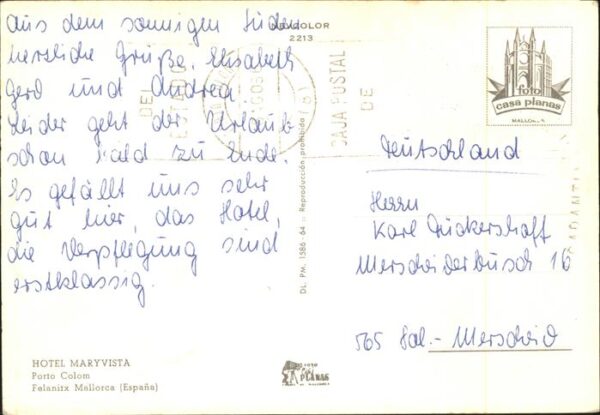 Aus dem sonnigen Süden
herzliche Grüße. Elisabeth
Gerd und Andrea.
Leider geht der Urlaub
schon bald zu Ende.
Es gefällt uns sehr
gut hier, das Hotel,
die Verpflegung sind
erstklassig.
HOTEL MARYVISTA
Porto Colom
Felanitx Mallorca (España)
NEVACOLOR
2213
DEL
CAJA POSTAL
DE
DL. PM. 1586-64 - Reproducción prohibida
foto
casa planas
MALLORCA
Deutschland
Herrn
Karl Duckershoff
Merscheiderbusch 16
565 Sol.-Merscheid
FOTO
PLANAS